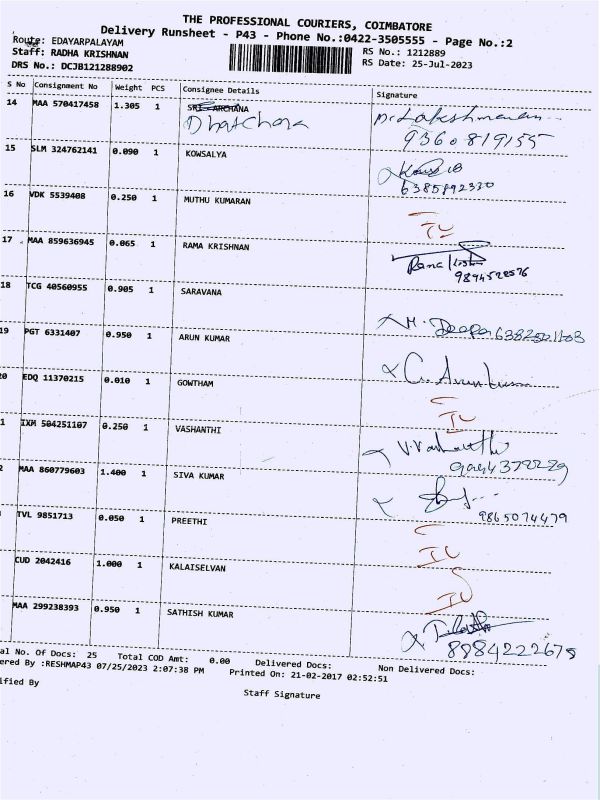 THE PROFESSIONAL COURIERS, COIMBATORE
Delivery Runsheet - P43 - Phone No.:0422-3505555 - Page No.:2
Route: EDAYARPALAYAM
Staff: RADHA KRISHNAN
RS No.: 1212889
DRS No.: DCJB121288902
RS Date: 25-Jul-2023
S No Consignment No Weight PCS Consignee Details Signature
14 MAA 570417458 1.305 1 SRI ARCHANA
Dhatchana
Lakshmanan
9360819155
15 SLM 324762141 0.090 1 KOWSALYA
6385892330
16 VDK 5539408 0.250 1 MUTHU KUMARAN
17 MAA 859636945 0.065 1 RAMA KRISHNAN
9894528576
18 TCG 40560955 0.905 1 SARAVANA
M. Deepa
19 PGT 6331407 0.950 1 ARUN KUMAR
C. Arun kumar
20 EDQ 11370215 0.010 1 GOWTHAM
1 IXM 504251107 0.250 1 VASHANTHI
V. Vashanthi
2 MAA 860779603 1.400 1 SIVA KUMAR
9865074479
TVL 9851713 0.050 1 PREETHI
CUD 2042416 1.000 1 KALAISELVAN
MAA 299238393 0.950 1 SATHISH KUMAR
8884222675
al No. Of Docs: 25 Total COD Amt: 0.00 Delivered Docs: Non Delivered Docs:
ered By :RESHMAP43 07/25/2023 2:07:38 PM Printed On: 21-02-2017 02:52:51
ified By
Staff Signature